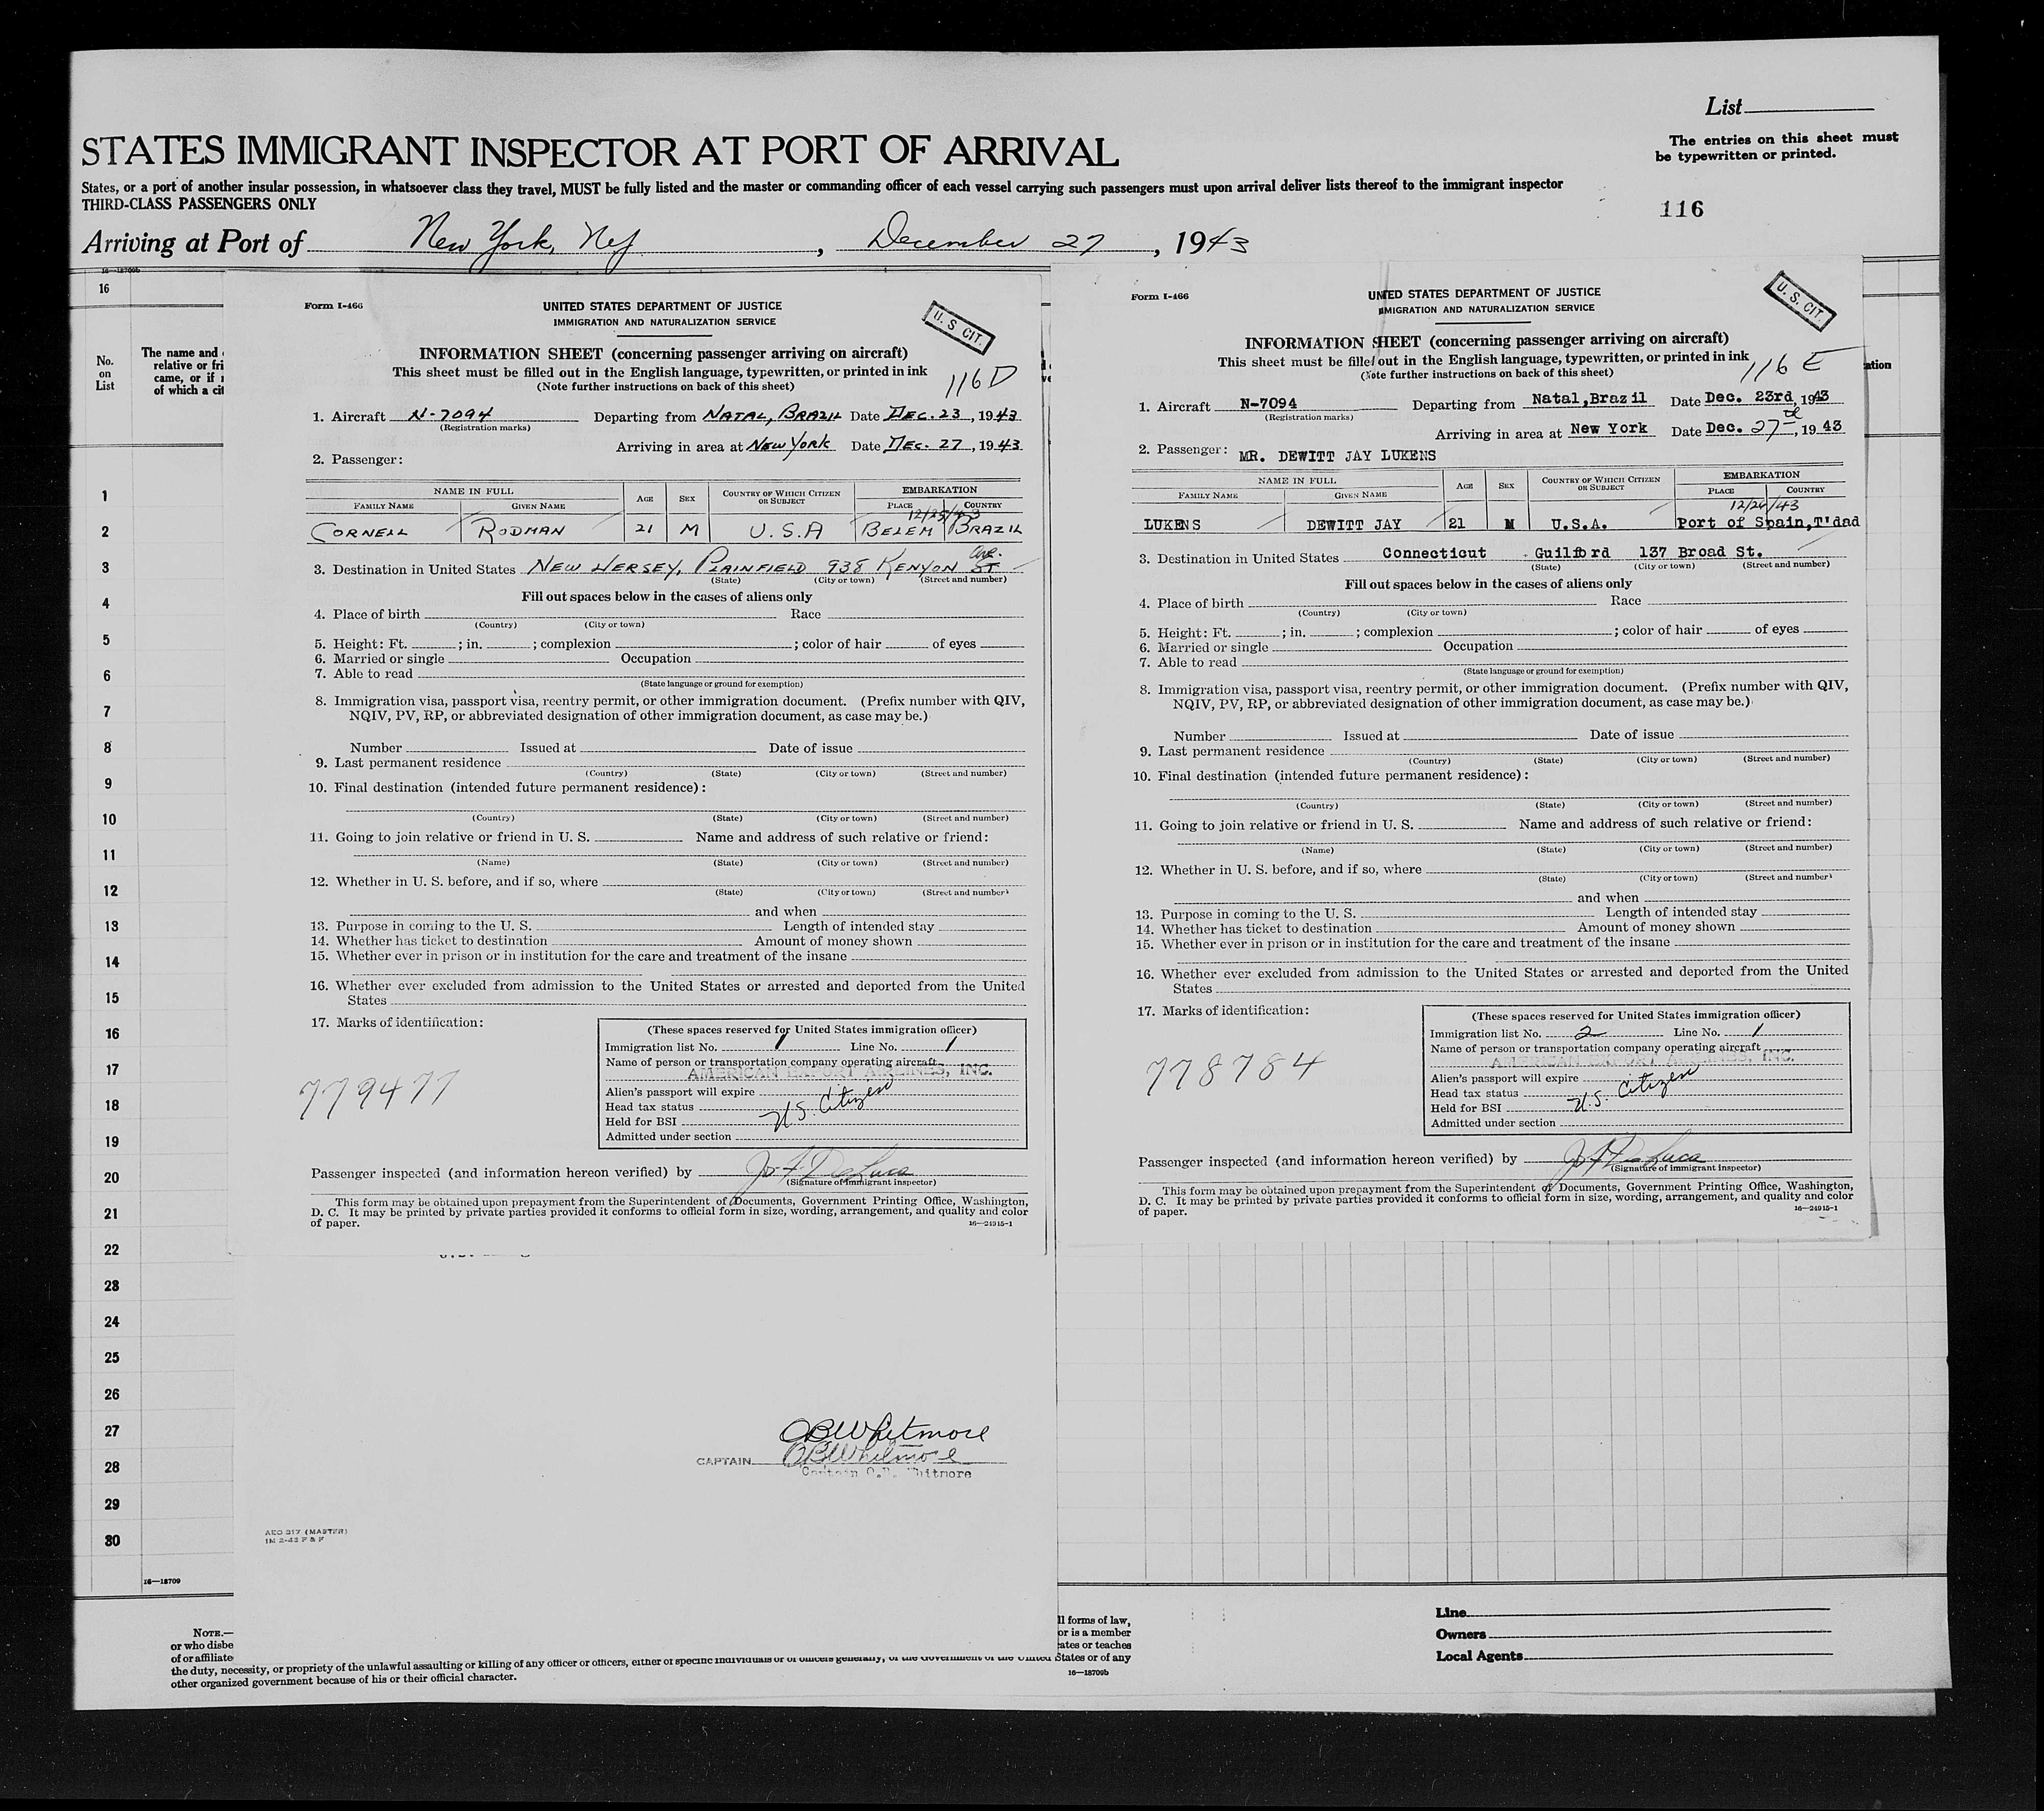 List
STATES IMMIGRANT INSPECTOR AT PORT OF ARRIVAL
The entries on this sheet must
be typewritten or printed.
States, or a port of another insular possession, in whatsoever class they travel, MUST be fully listed and the master or commanding officer of each vessel carrying such passengers must upon arrival deliver lists thereof to the immigrant inspector
THIRD-CLASS PASSENGERS ONLY
116
Arriving at Port of New York, NY, December 27, 1943
16—18709b
16
No.
on
List
The name and
relative or fri
came, or if
of which a cit
Form I-466
UNITED STATES DEPARTMENT OF JUSTICE
IMMIGRATION AND NATURALIZATION SERVICE
U. S CIT.
INFORMATION SHEET (concerning passenger arriving on aircraft)
This sheet must be filled out in the English language, typewritten, or printed in ink
(Note further instructions on back of this sheet)
116 D
1. Aircraft N-7094 Departing from NATAL, BRAZIL Date DEC. 23, 1943
(Registration marks)
Arriving in area at NEW YORK Date DEC. 27, 1943
2. Passenger:
NAME IN FULL AGE SEX COUNTRY OF WHICH CITIZEN OR SUBJECT EMBARKATION
FAMILY NAME GIVEN NAME PLACE COUNTRY
12/25/43
CORNELL RODMAN 21 M U.S.A BELEM BRAZIL
Ave.
3. Destination in United States NEW JERSEY, PLAINFIELD 938 KENYON ST
(State) (City or town) (Street and number)
Fill out spaces below in the cases of aliens only
4. Place of birth Race
(Country) (City or town)
5. Height: Ft. ; in. ; complexion ; color of hair of eyes
6. Married or single Occupation
7. Able to read
(State language or ground for exemption)
8. Immigration visa, passport visa, reentry permit, or other immigration document. (Prefix number with QIV,
NQIV, PV, RP, or abbreviated designation of other immigration document, as case may be.)
Number Issued at Date of issue
9. Last permanent residence
(Country) (State) (City or town) (Street and number)
10. Final destination (intended future permanent residence):
(Country) (State) (City or town) (Street and number)
11. Going to join relative or friend in U. S. Name and address of such relative or friend:
(Name) (State) (City or town) (Street and number)
12. Whether in U. S. before, and if so, where
(State) (City or town) (Street and number)
and when
13. Purpose in coming to the U. S. Length of intended stay
14. Whether has ticket to destination Amount of money shown
15. Whether ever in prison or in institution for the care and treatment of the insane
16. Whether ever excluded from admission to the United States or arrested and deported from the United
States
17. Marks of identification:
(These spaces reserved for United States immigration officer)
Immigration list No. 1 Line No. 1
Name of person or transportation company operating aircraft
AMERICAN EXPORT AIRLINES, INC.
779477
Alien's passport will expire
Head tax status U.S. Citizen
Held for BSI
Admitted under section
Passenger inspected (and information hereon verified) by J. F. DeLuca
(Signature of immigrant inspector)
This form may be obtained upon prepayment from the Superintendent of Documents, Government Printing Office, Washington,
D. C. It may be printed by private parties provided it conforms to official form in size, wording, arrangement, and quality and color
of paper.
16—24915-1
Form I-466
UNITED STATES DEPARTMENT OF JUSTICE
IMMIGRATION AND NATURALIZATION SERVICE
U. S. CIT.
INFORMATION SHEET (concerning passenger arriving on aircraft)
This sheet must be filled out in the English language, typewritten, or printed in ink
(Note further instructions on back of this sheet)
116 E
ation
1. Aircraft N-7094 Departing from Natal,Brazil Date Dec. 23rd, 1943
(Registration marks)
Arriving in area at New York Date Dec. 27th, 1943
2. Passenger: MR. DEWITT JAY LUKENS
NAME IN FULL AGE SEX COUNTRY OF WHICH CITIZEN OR SUBJECT EMBARKATION
FAMILY NAME GIVEN NAME PLACE COUNTRY
12/26/43
LUKENS DEWITT JAY 21 M U.S.A. Port of Spain,T'dad
3. Destination in United States Connecticut Guilford 137 Broad St.
(State) (City or town) (Street and number)
Fill out spaces below in the cases of aliens only
4. Place of birth Race
(Country) (City or town)
5. Height: Ft. ; in. ; complexion ; color of hair of eyes
6. Married or single Occupation
7. Able to read
(State language or ground for exemption)
8. Immigration visa, passport visa, reentry permit, or other immigration document. (Prefix number with QIV,
NQIV, PV, RP, or abbreviated designation of other immigration document, as case may be.)
Number Issued at Date of issue
9. Last permanent residence
(Country) (State) (City or town) (Street and number)
10. Final destination (intended future permanent residence):
(Country) (State) (City or town) (Street and number)
11. Going to join relative or friend in U. S. Name and address of such relative or friend:
(Name) (State) (City or town) (Street and number)
12. Whether in U. S. before, and if so, where
(State) (City or town) (Street and number)
and when
13. Purpose in coming to the U. S. Length of intended stay
14. Whether has ticket to destination Amount of money shown
15. Whether ever in prison or in institution for the care and treatment of the insane
16. Whether ever excluded from admission to the United States or arrested and deported from the United
States
17. Marks of identification:
(These spaces reserved for United States immigration officer)
Immigration list No. 2 Line No. 1
Name of person or transportation company operating aircraft
AMERICAN EXPORT AIRLINES, INC.
778784
Alien's passport will expire
Head tax status U.S. Citizen
Held for BSI
Admitted under section
Passenger inspected (and information hereon verified) by J. F. DeLuca
(Signature of immigrant inspector)
This form may be obtained upon prepayment from the Superintendent of Documents, Government Printing Office, Washington,
D. C. It may be printed by private parties provided it conforms to official form in size, wording, arrangement, and quality and color
of paper.
16—24915-1
1
2
3
4
5
6
7
8
9
10
11
12
13
14
15
16
17
18
19
20
21
22
23
24
25
26
27
28
29
30
OBWhitmore
CAPTAIN OBWhitmore
Captain O.B. Whitmore
AEO 217 (MASTER)
1M 2-43 F & F
16—18709
NOTE.— ll forms of law,
or who disbe or is a member
of or affiliate cates or teaches
the duty, necessity, or propriety of the unlawful assaulting or killing of any officer or officers, either of specific individuals or of officers generally, of the Government of the United States or of any
other organized government because of his or their official character.
16—18709b
Line
Owners
Local Agents